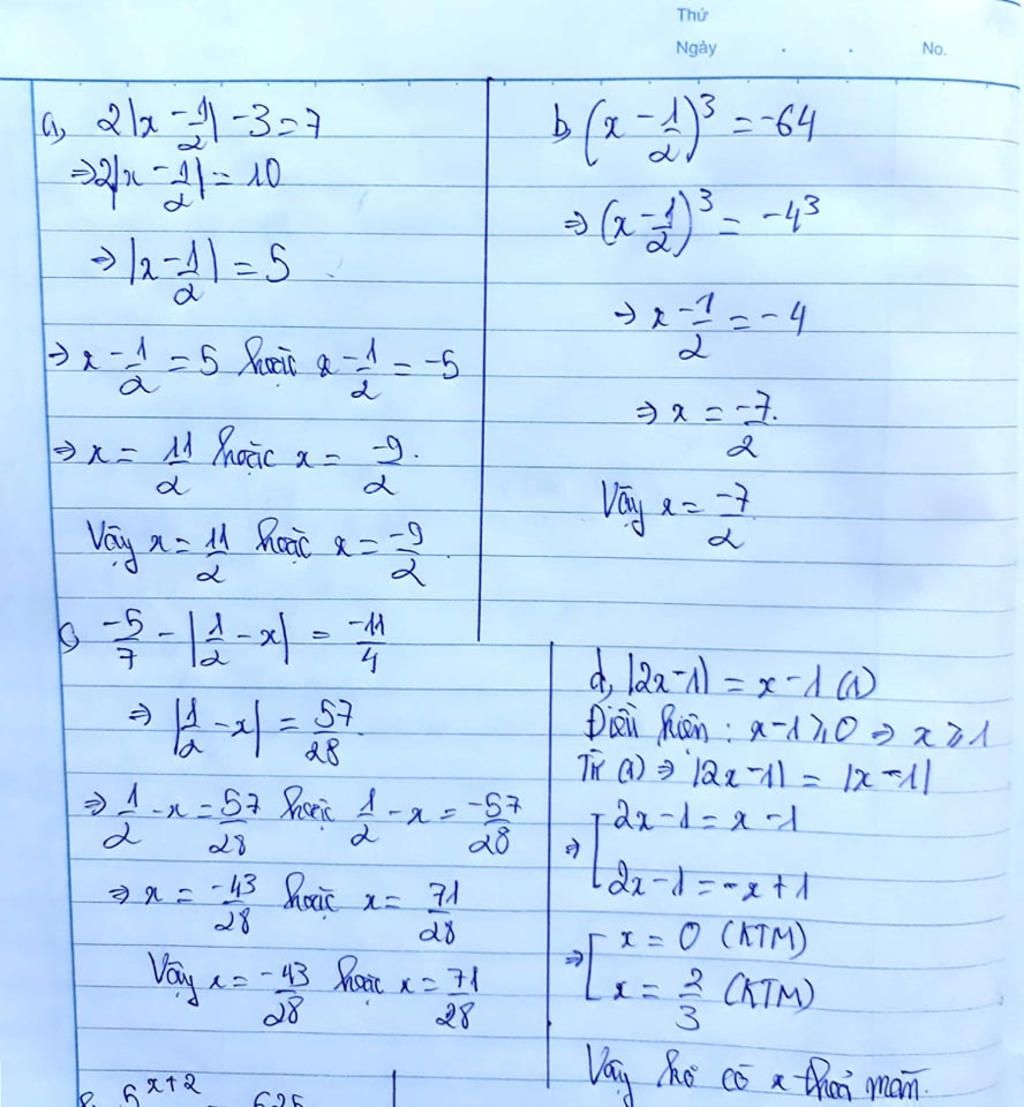 Thứ
Ngày . . No.
a, 2|x - 1/2| - 3 = 7
⇒ 2|x - 1/2| = 10
⇒ |x - 1/2| = 5
⇒ x - 1/2 = 5 hoặc x - 1/2 = -5
⇒ x = 11/2 hoặc x = -9/2.
Vậy x = 11/2 hoặc x = -9/2.
b, (x - 1/2)³ = -64
⇒ (x - 1/2)³ = -4³
⇒ x - 1/2 = -4
⇒ x = -7/2.
Vậy x = -7/2.
c, -5/7 - |1/2 - x| = -11/4
⇒ |1/2 - x| = 57/28.
⇒ 1/2 - x = 57/28 hoặc 1/2 - x = -57/28
⇒ x = -43/28 hoặc x = 71/28
Vậy x = -43/28 hoặc x = 71/28
d, |2x - 1| = x - 1 (1)
Điều kiện : x - 1 ≥ 0 ⇒ x ≥ 1
Từ (1) ⇒ |2x - 1| = |x - 1|
⇒ [ 2x - 1 = x - 1
2x - 1 = -x + 1
⇒ [ x = 0 (KTM)
x = 2/3 (KTM)
Vậy ko có x thoả mãn.
5^(x+2) = 625